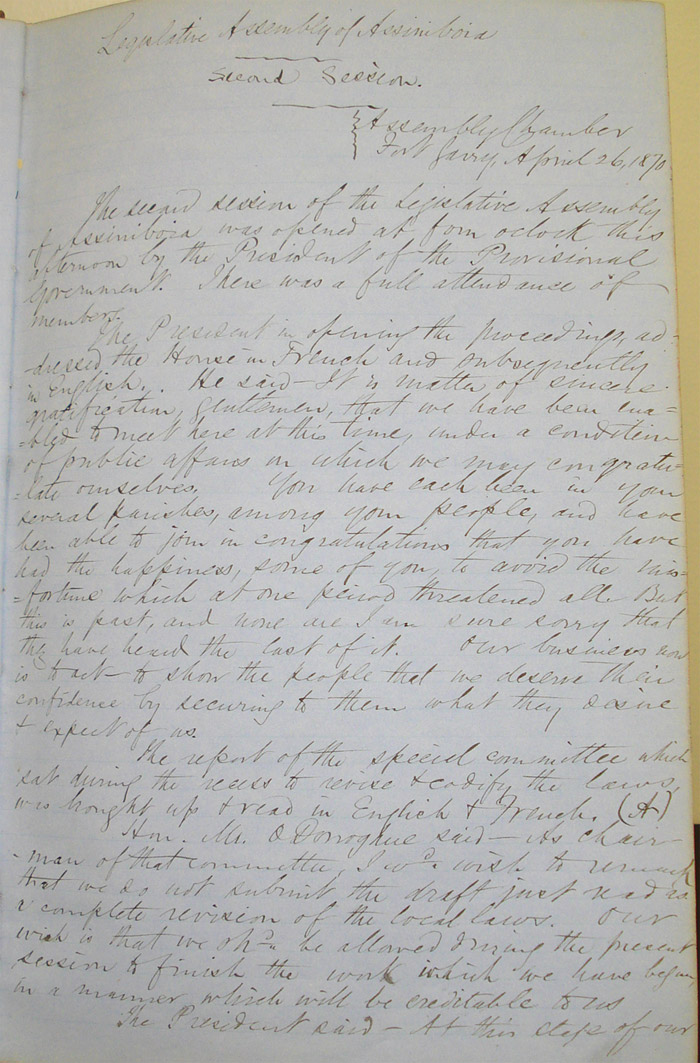 Legislative Assembly of Assiniboia
Second Session.
Assembly Chamber
Fort Garry, April 26, 1870
The second session of the Legislative Assembly
of Assiniboia was opened at four oclock this
afternoon by the President of the Provisional
Government. There was a full attendance of
members.
The President in opening the proceedings, ad-
-dressed the House in French and subsequently
in English. He said – It is matter of sincere
gratification, gentlemen, that we have been ena-
-bled to meet here at this time, under a condition
of public affairs on which we may congratu-
-late ourselves. You have each been in your
several parishes, among your people, and have
been able to join in congratulations that you have
had the happiness, some of you, to avoid the mis-
-fortune which at one period threatened all. But
this is past, and none are I am sure sorry that
they have heard the last of it. Our business now
is to act – to show the people that we deserve their
confidence by securing to them what they desire
& expect of us.
The report of the special committee which
sat during the recess to revise & codify the laws,
was brought up & read in English & French. (A)
Hon. Mr. O'Donoghue said – As chair-
-man of that committee, I wd wish to remark
that we do not submit the draft just read as
a complete revision of the local laws. Our
wish is that we shd be allowed during the present
session to finish the work which we have begun,
in a manner which will be creditable to us
The President said – At this stage of our